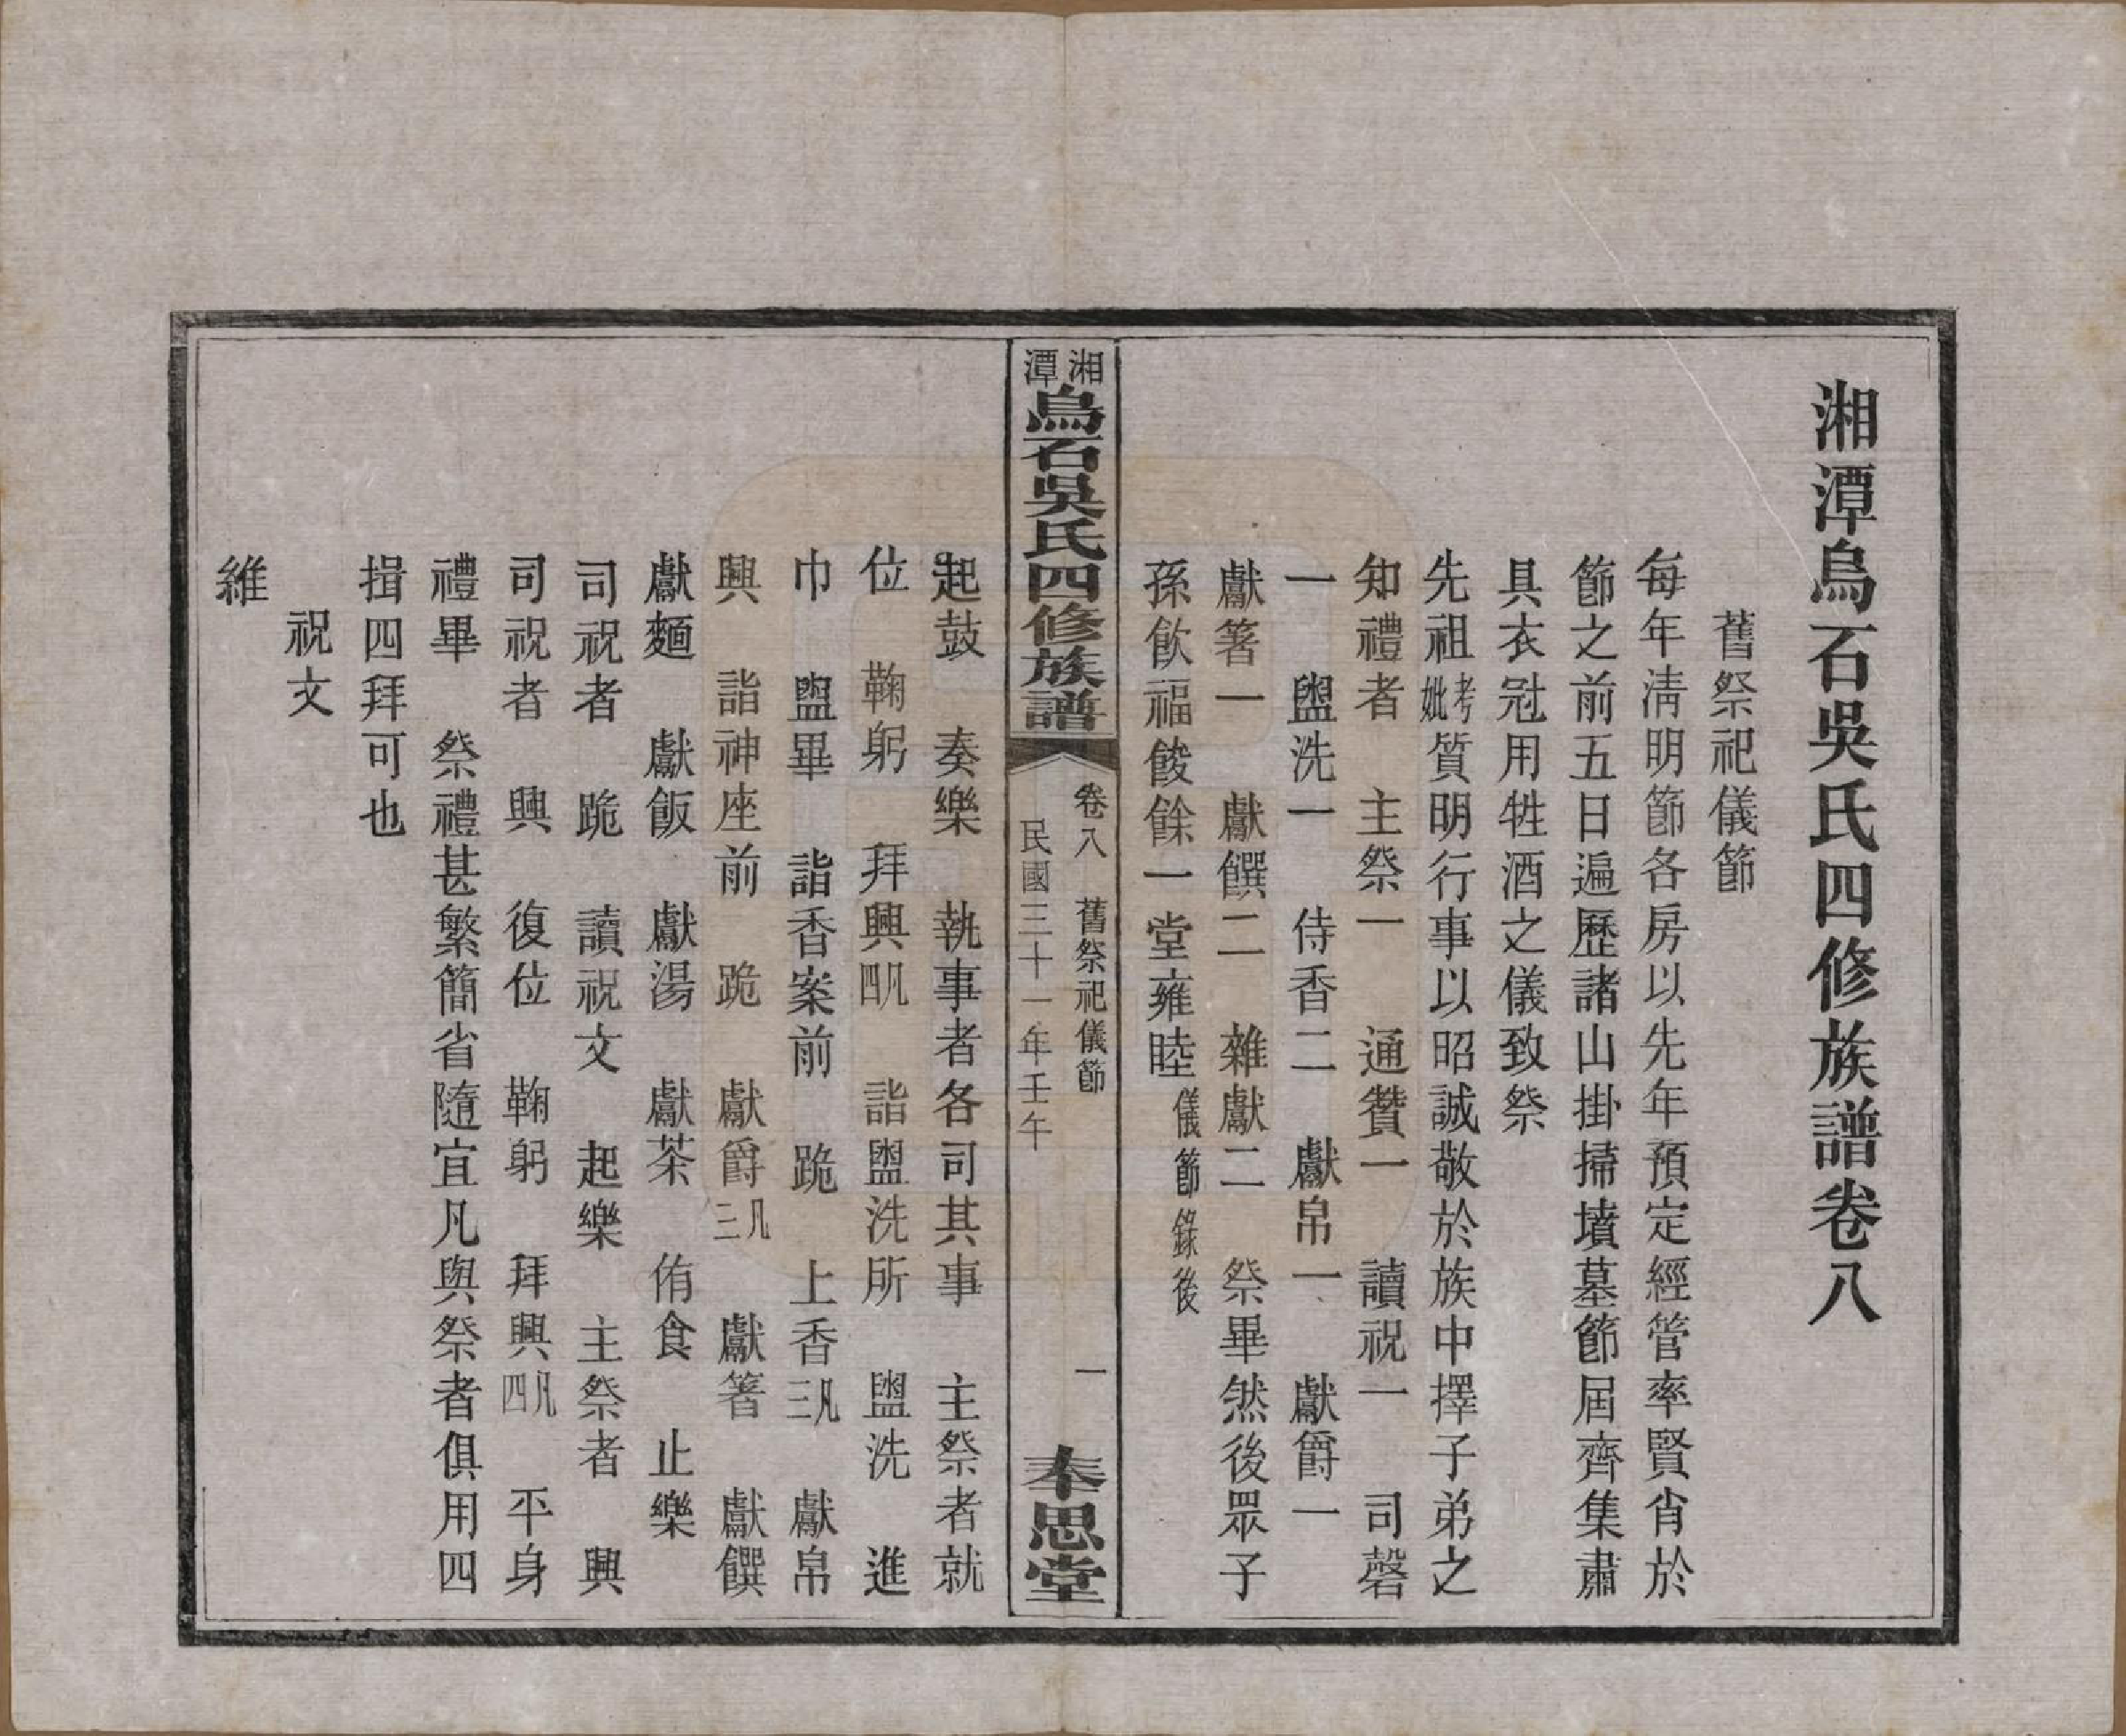 湘潭烏石吳氏四修族譜卷八
舊祭祀儀節
每年淸明節各房以先年預定經管率賢肖於
節之前五日遍歷諸山掛掃墳墓節屆齊集肅
具衣冠用牲酒之儀致祭
先祖考妣質明行事以昭誠敬於族中擇子弟之
知禮者 主祭一 通贊一 讀祝一 司磬
一 盥洗一 侍香二 獻帛一 獻爵一
獻箸一 獻饌二 雜獻二 祭畢然後眾子
孫飲福餕餘一堂雍睦儀節錄後
湘潭烏石吳氏四修族譜
卷八 舊祭祀儀節 一
民國三十一年壬午
奉思堂
起鼓 奏樂 執事者各司其事 主祭者就
位 鞠躬 拜興凡四 詣盥洗所 盥洗 進
巾 盥畢 詣香案前 跪 上香凡三 獻帛
興 詣神座前 跪 獻爵凡三 獻箸 獻饌
獻麵 獻飯 獻湯 獻茶 侑食 止樂
司祝者 跪 讀祝文 起樂 主祭者 興
司祝者 興 復位 鞠躬 拜興凡四 平身
禮畢 祭禮甚繁簡省隨宜凡與祭者俱用四
揖四拜可也
祝文
維